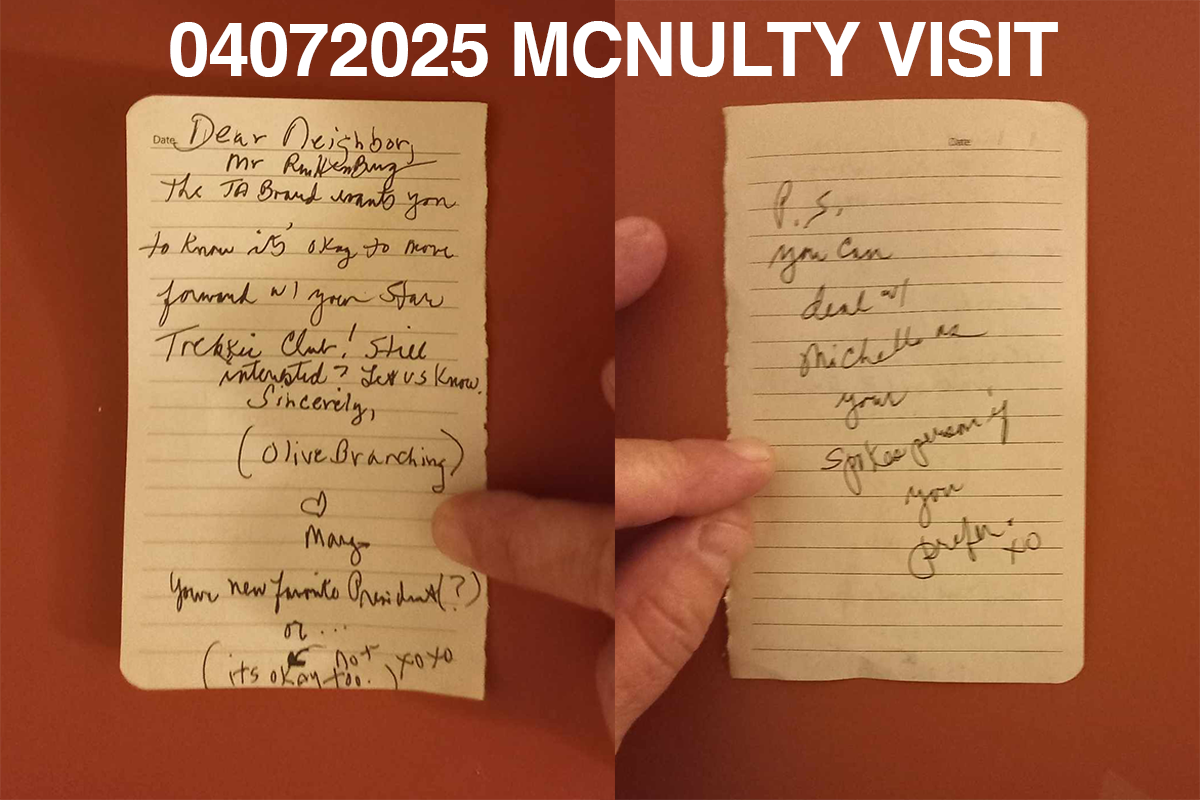 04072025 MCNULTY VISIT
Date Dear Neighbor,
Mr
The TA Board wants you
to know it's okay to move
forward w/ your Star
Trekkie Club! Still
interested? Let us know.
Sincerely,
(Olive Branching)
♡
Mary
Your new favorite President(?)
or ...
(its okay too.) not xoxo
Date
P.S.
you can
deal w/
Michelle as
your
Spokesperson if
you
prefer.
xo